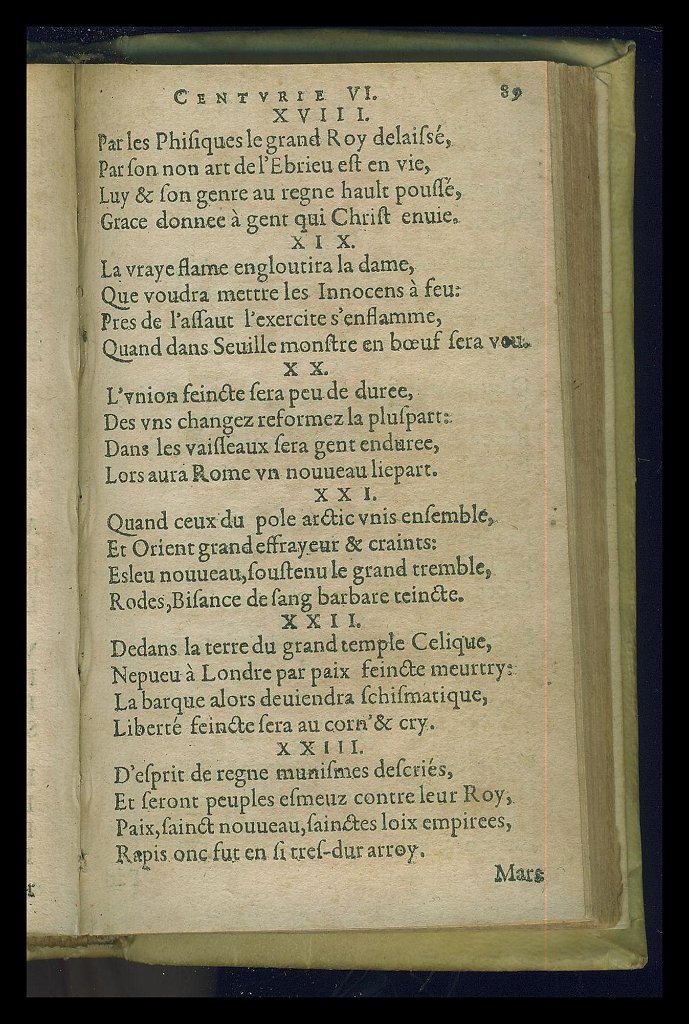 CENTVRIE VI. 89
XVIII.
Par les Phiſiques le grand Roy delaiſſé,
Par ſon non art de l'Ebrieu eſt en vie,
Luy & ſon genre au regne hault pouſſé,
Grace donnee à gent qui Chriſt enuie.
XIX.
La vraye flame engloutira la dame,
Que voudra mettre les Innocens à feu:
Pres de l'aſſaut l'exercite s'enflamme,
Quand dans Seuille monſtre en bœuf ſera veu.
XX.
L'vnion feincte ſera peu de duree,
Des vns changez reformez la pluſpart:
Dans les vaiſſeaux ſera gent enduree,
Lors aura Rome vn nouueau liepart.
XXI.
Quand ceux du pole arctic vnis enſemble,
Et Orient grand effrayeur & craints:
Esleu nouueau, ſouſtenu le grand tremble,
Rodes, Biſance de ſang barbare teincte.
XXII.
Dedans la terre du grand temple Celique,
Nepueu à Londre par paix feincte meurtry:
La barque alors deuiendra ſchiſmatique,
Liberté feincte ſera au corn' & cry.
XXIII.
D'eſprit de regne muniſmes deſcriés,
Et ſeront peuples eſmeuz contre leur Roy,
Paix, ſainct nouueau, ſainctes loix empirees,
Rapis onc fut en ſi treſ-dur arroy.
Mars
r